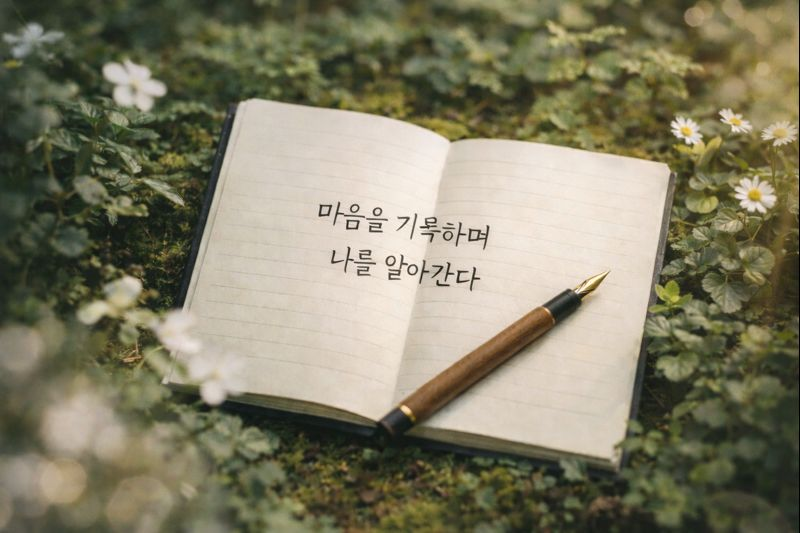 마음을 기록하며
나를 알아간다